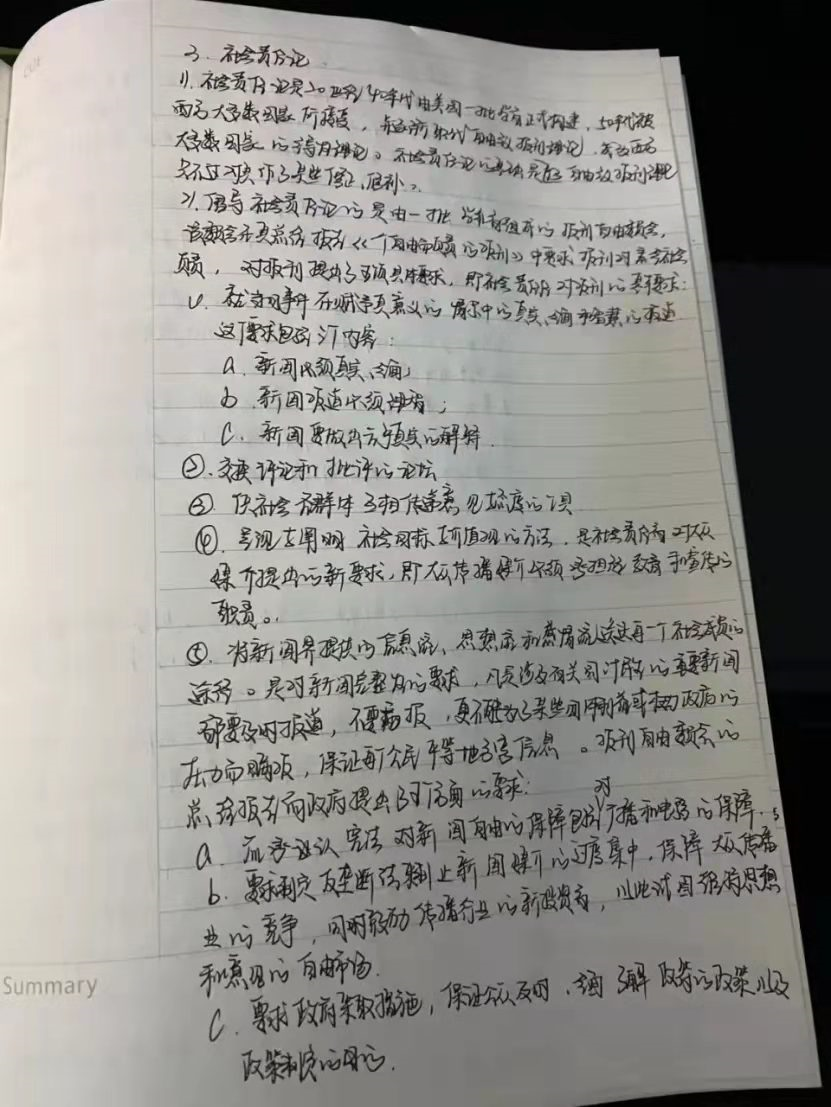 3. 社会责任论
1). 社会责任论是20世纪40年代由美国一批学者正式构建, 50年代被
西方大多数国家所接受, 逐渐取代自由主义报刊理论, 成为西方
大多数国家的 理论。社会责任论 自由主义报刊理论
作了某些修正、弥补。
2). 倡导社会责任论的是由一批学者组成的报刊自由委员会,
该委员会在其总结报告《一个自由而负责的报刊》中要求报刊对社会
负责, 对报刊提出了五项具体要求, 即社会责任论对报刊的具体要求:
①. 就当日事件在赋予其意义的情景中的真实、全面和智慧的报道
这个要求包括3个内容:
a. 新闻必须真实、全面;
b. 新闻报道必须 ;
c. 新闻要做出 真实的解释.
②. 交换评论和批评的论坛
③ 供社会各群体互相传递意见与态度的工具
④. 呈现与阐明社会目标与价值观的方法, 是社会责任论对大众
媒介提出的新要求, 即大众传播媒介必须承担起教育和宣传的
职责。
⑤. 将新闻界提供的信息流、思想流和感情流送达每一个社会成员的
途径。是对新闻完整性的要求, 凡是涉及有关国计民生的重要新闻
都要及时报道, 不要漏报, 更不能为了某些团体利益或 政府的
压力而瞒报, 保证每个公民平等地 信息。报刊自由委员会的
总结报告向政府提出了 方面的要求:
a. 应当承认宪法对新闻自由的保障包括对广播和电影的保障.
b. 要求制定反垄断法制止新闻媒介的过度集中, 保障大众传播
业的竞争, 同时鼓励传播行业的新投资者, 以此试图维持思想
和意见的自由市场.
c. 要求政府采取措施, 保证公众及时、全面了解政策的政策以及
政策 的目的.
Summary